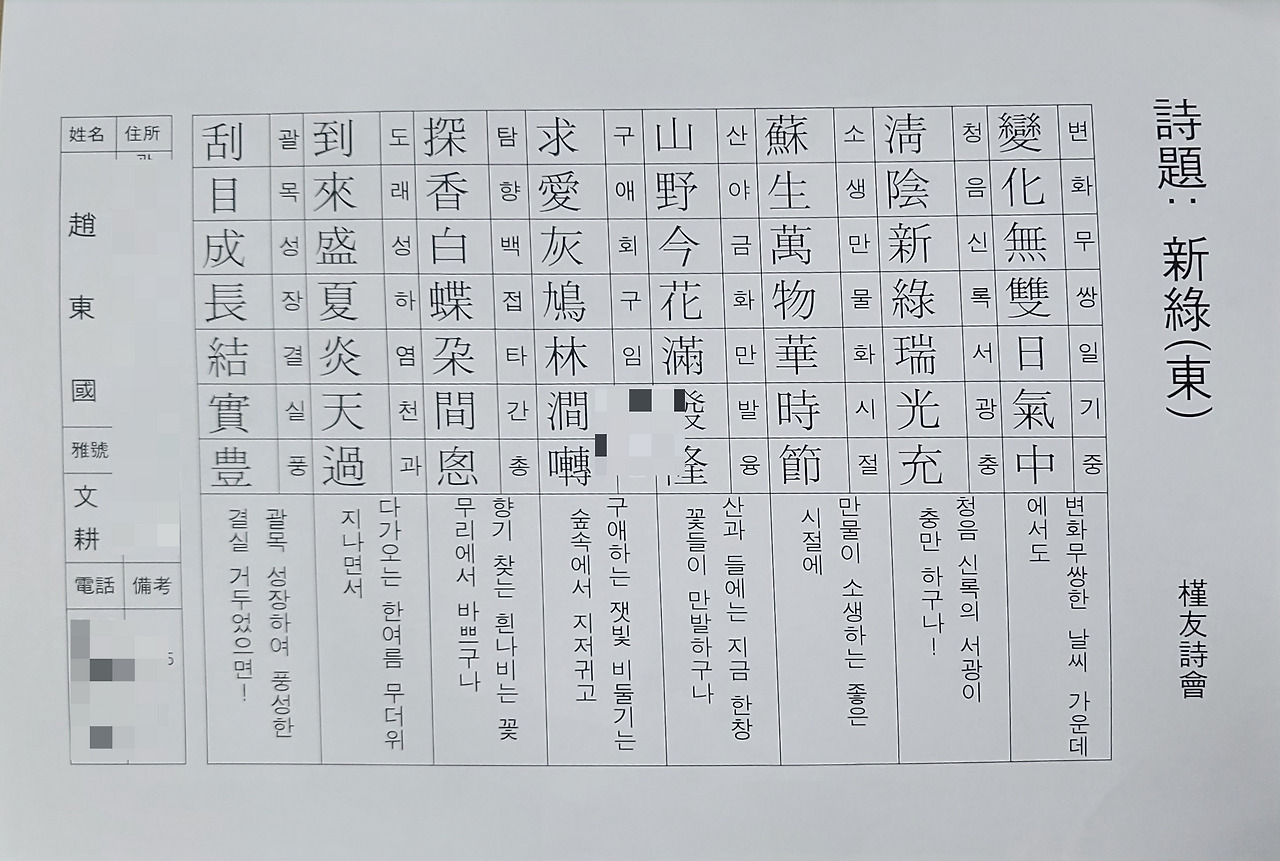 詩題: 新綠(東)
槿友詩會
變化無雙日氣中
변화무쌍일기중
변화무쌍한 날씨 가운데
에서도
淸陰新綠瑞光充
청음신록서광충
청음 신록의 서광이
충만 하구나!
蘇生萬物華時節
소생만물화시절
만물이 소생하는 좋은
시절에
山野今花滿發隆
산야금화만발융
산과 들에는 지금 한창
꽃들이 만발하구나
求愛灰鳩林澗囀
구애회구임
구애하는 잿빛 비둘기는
숲속에서 지저귀고
探香白蝶朶間悤
탐향백접타간총
향기 찾는 흰나비는 꽃
무리에서 바쁘구나
到來盛夏炎天過
도래성하염천과
다가오는 한여름 무더위
지나면서
刮目成長結實豊
괄목성장결실풍
괄목 성장하여 풍성한
결실 거두었으면!
住所
姓名
趙東國
雅號
文耕
備考
電話
5